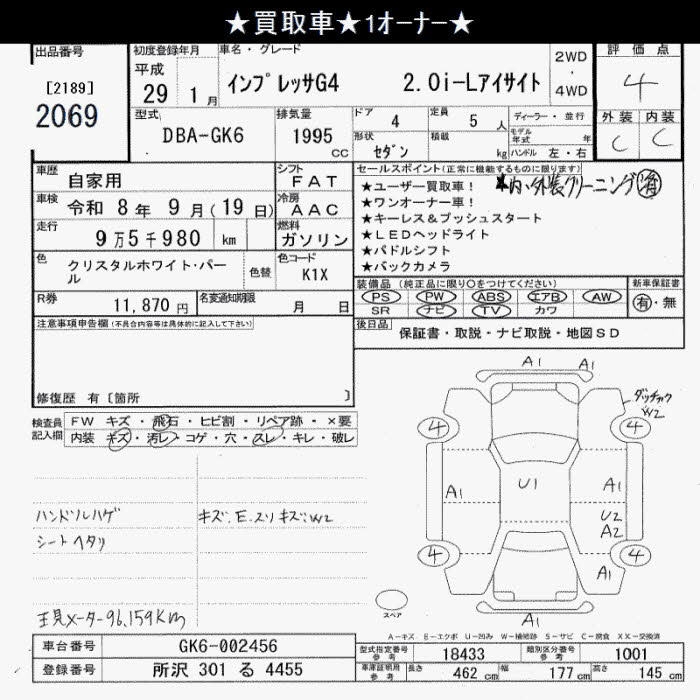 ★買取車★1オーナー★
出品番号
[2189]
2069
初度登録年月
平成
29 1 月
車名・グレード
インプレッサG4 2.0i-Lアイサイト
2WD
・
4WD
評価点
4
外装 内装
C C
型式
DBA-GK6
排気量
1995 CC
ドア 4
定員 5 人
形状 セダン
積載 kg
ディーラー・並行
モデル年式 年
ハンドル 左・右
車歴
自家用
シフト
FAT
車検 令和 8 年 9 月(19 日)
冷房
AAC
走行
9 万 5 千 980 km
燃料
ガソリン
色
クリスタルホワイト・パール
色替
色コード
K1X
R券
11,870 円
名変通知期限
月 日
セールスポイント(正常に機能するものに限ります)
★ユーザー買取車! ★内・外装クリーニング済
★ワンオーナー車!
★キーレス&プッシュスタート
★LEDヘッドライト
★パドルシフト
★バックカメラ
装備品 (純正品に限り○をつけてください)
PS PW ABS エアB AW
SR ナビ TV カワ
新車保証書
有・無
後日品
保証書・取説・ナビ取説・地図SD
注意事項申告欄(不具合内容等は具体的に記入して下さい)
修復歴 有〔箇所 〕
検査員記入欄
FW キズ・飛石・ヒビ割・リペア跡・×要
内装 キズ・汚レ・コゲ・穴・スレ・キレ・破レ
ハンドルハゲ キズ.E.スリキズ.W2
シートヘタリ
現メーター96,159Km
A1 A1
ダッチャク
W2
4 4
A1 U1 A1
U2
A2
4 4
A1
A1
スペア
A-キズ E-エクボ U-凹み W-補修跡 S-サビ C-腐食 XX-交換済
車台番号
GK6-002456
型式指定番号 参考
18433
類別区分番号 参考
1001
登録番号
所沢 301 る 4455
車庫証明用 参考
長さ 462 cm
幅 177 cm
高さ 145 cm